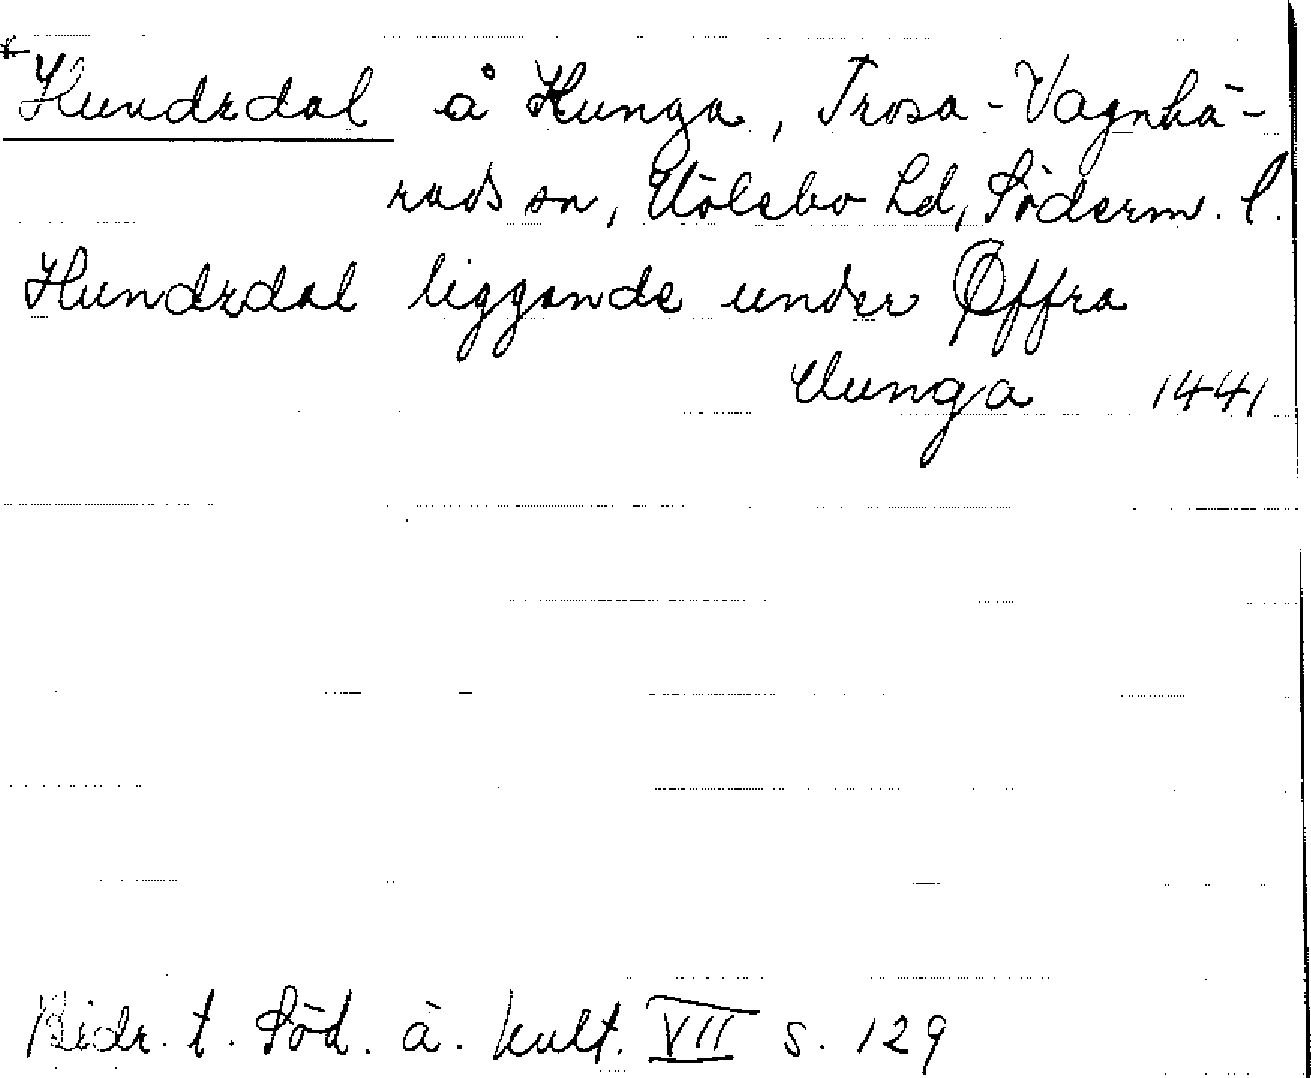 *Hundrdal å Hunga, Trosa-Vagnhä-
rads sn, Hölebo hd, Söderm. l.
Hundrdal liggande under Øffra
Hunga 1441
Bidr. t. Söd. ä. kult. VII s. 129